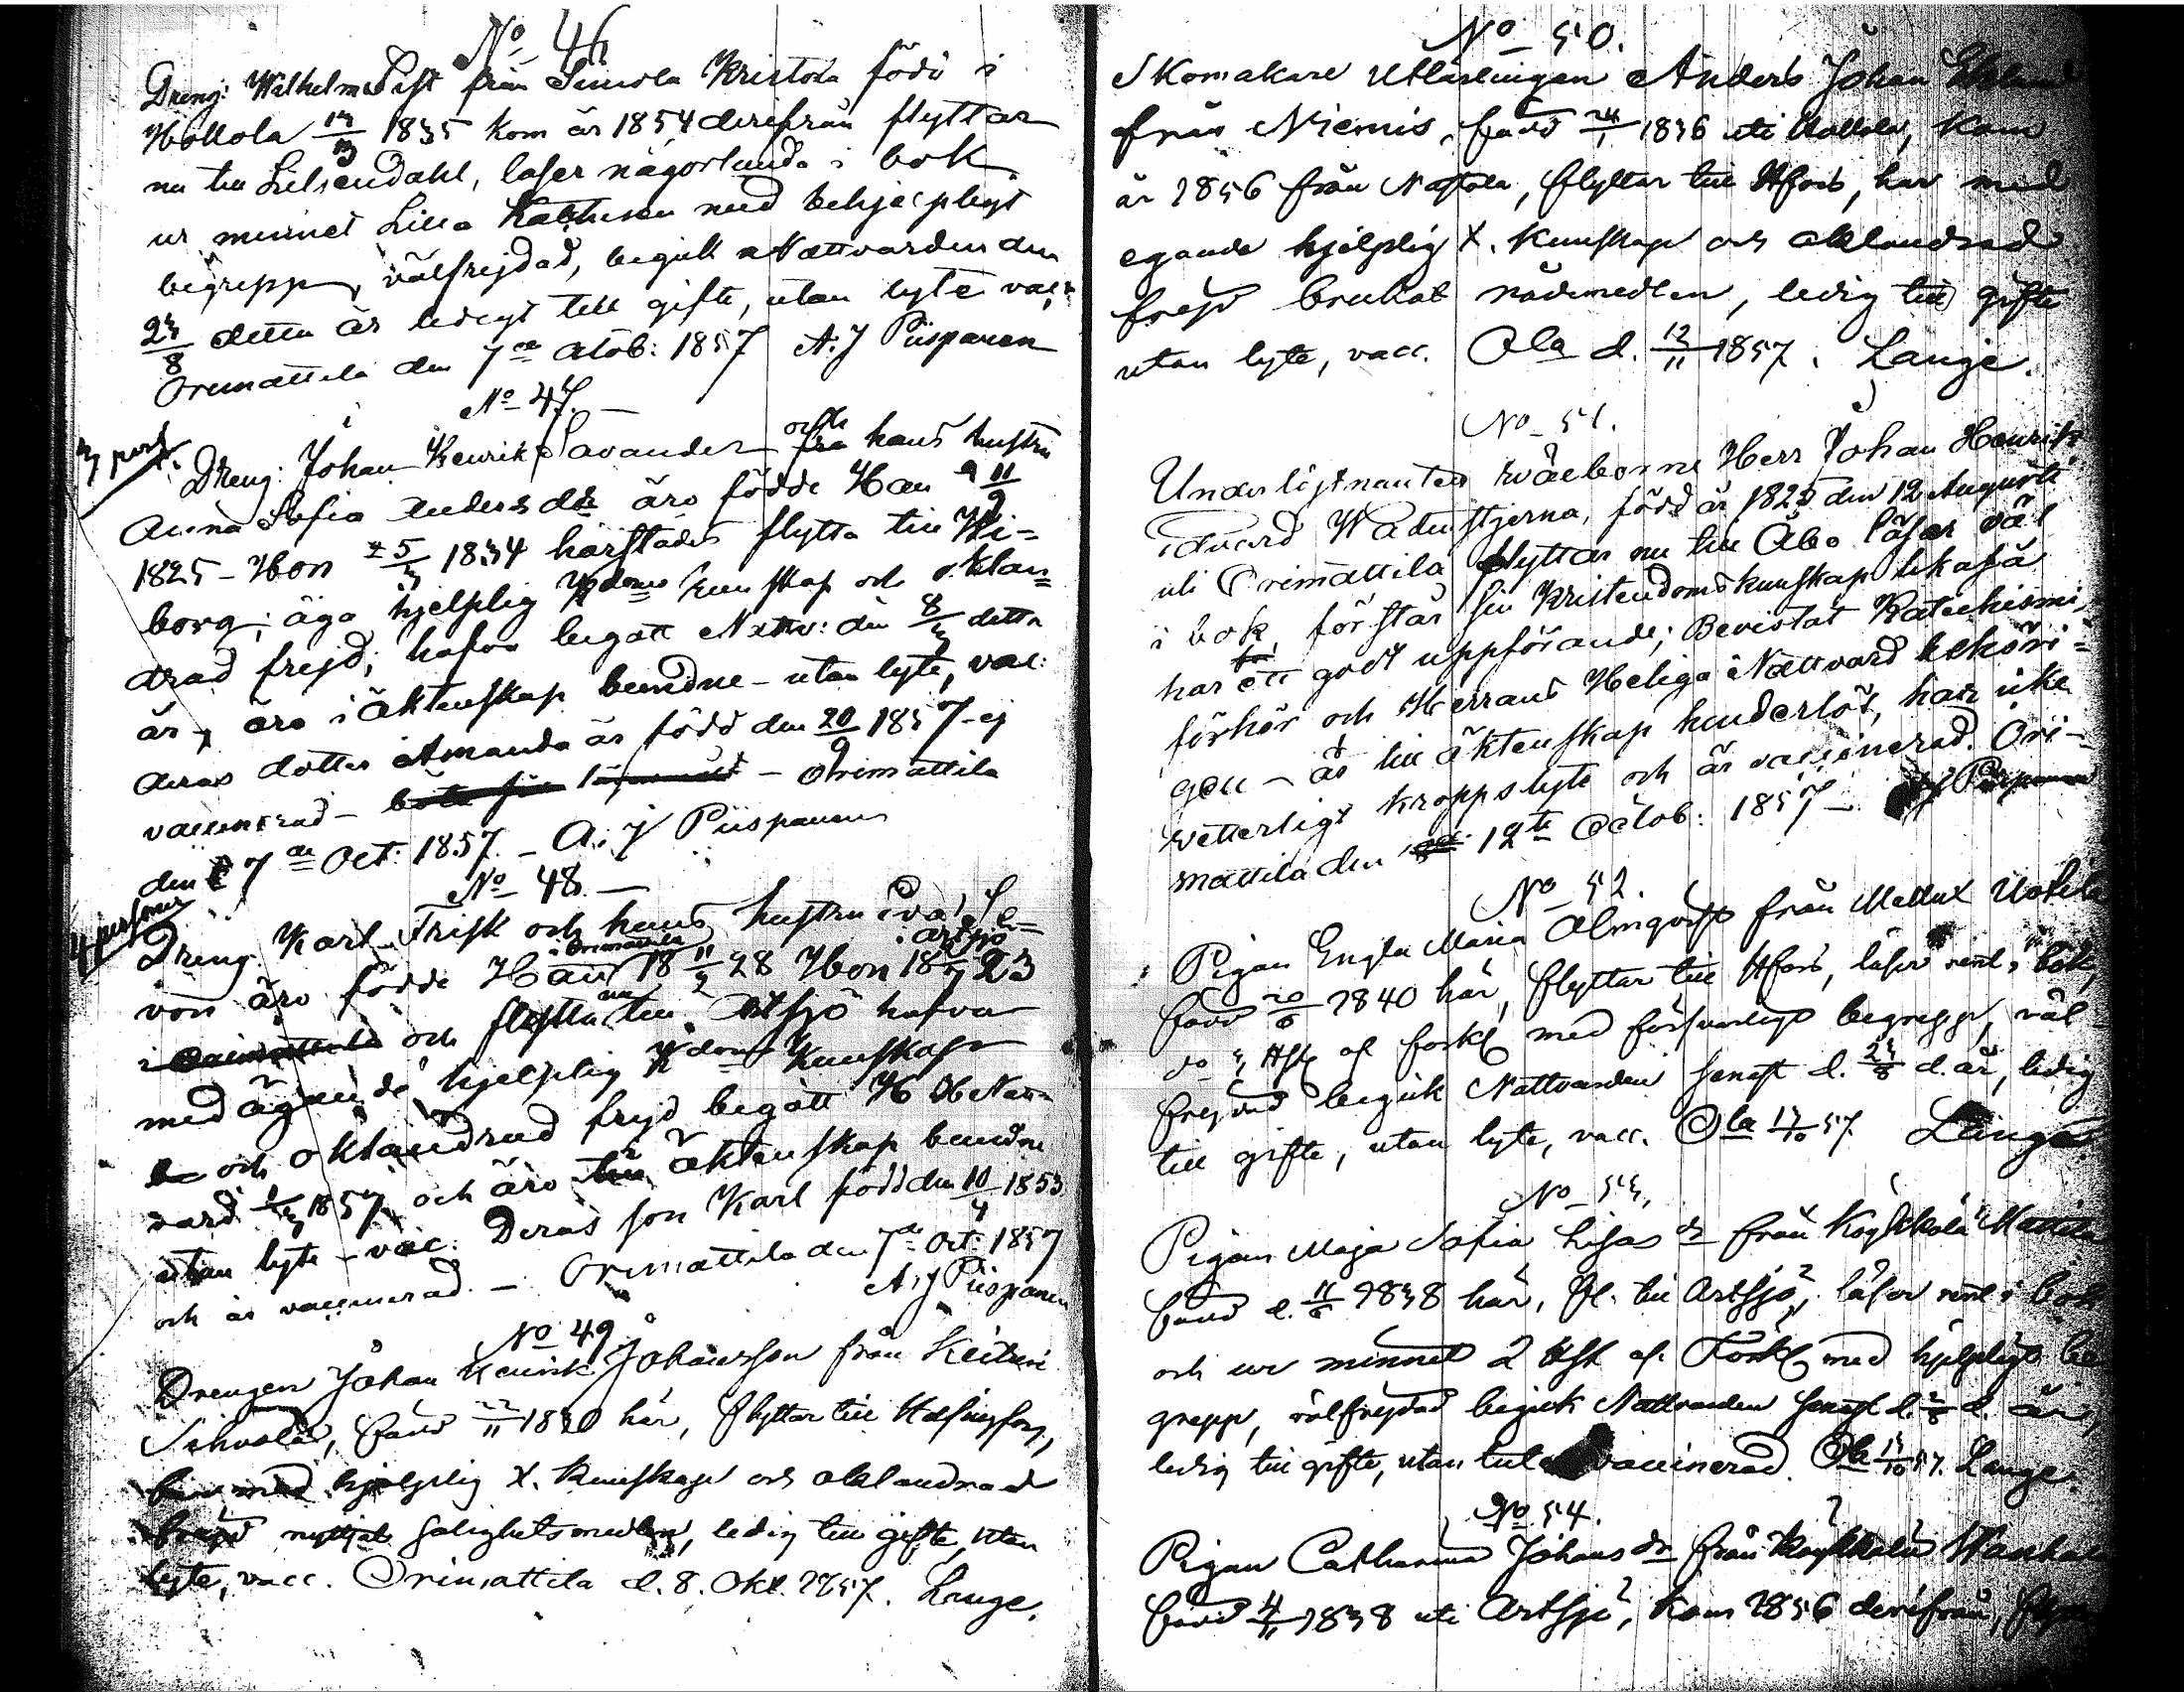 No 46
Dreng: Wilhelm från Simola Kristola född i
Hollola 1835 kom år 1854 derefrån flyttar
nu till Liljendahl, läser någorlunda i bok
ur minnet Lilla Kathesen med behjelpligt
begrepp, välfrejdad, begick Nattvarden den
23/8 detta år ledigt till gifte, utan lyte vac:
Orimattila den 7de Octob: 1857 A. J Piispanen
No 47. —
3 pers.
Dreng: Johan Henrik Savander och hans hustru
Anna Sofia Andersdr äro födde Han 11/9
1825 – Hon 5/3 1834 härstädes flytta till Wi=
borg; äga hjelplig Kdoms kunskap och oklan=
drad frejd; hafva begått Nattv: den 8/3 detta
år, äro i äktenskap bundne – utan lyte, vac:
deras dotter Amanda är född den 20/9 1857 – ej
vaccinerad – Orimattila
den 7de Oct: 1857. – A. J Piispanen
No 48. —
4 personer
Dreng Karl Frisk och hans hustru Eva Le=
i Orimattila i Artsjö
von äro födde Han 18 11/2 28 Hon 18 23
i Orimattila och flytta nu till Artsjö hafva
med ägande hjelplig Kdoms Kunskap
och oklandrad frejd begått H H Natt
vard 1857 och äro i äktenskap bundne
utan lyte – vac: Deras son Karl född den 10/4 1853
och är vaccinerad. – Orimattila den 7de Oct: 1857
A. J Piispanen
No 49.
Drengen Johan Henrik Johansson från Keituri
Sihvola, född 22/11 1830 här, flyttar till Helsingfors,
har med hjelplig X. kunskap och oklandrad
frejd nyttjat salighetsmedlen, ledig till gifte, utan
lyte, vacc. Orimattila d. 8. Okt. 1857. Lange.
No 50.
Skomakare Utlärlingen Anders Johan Eklund
från Niemis, född 24/1 1836 uti Hollola, kom
år 1856 från Nastola, flyttar till Hfors, har med
egande hjelplig X. kunskap och oklandrad
frejd brukat nådemedlen, ledig till gifte
utan lyte, vacc. Ola d. 12/11 1857. Lange.
No 51.
Underlöjtnanten Wälborne Herr Johan Henrik
Edvard Wadenstjerna, född år 1825 den 12 Augusti
uti Orimattila flyttar nu till Åbo läser väl
i bok, förstår sin Kristendomskunskap likaså
har ett godt uppförande; Bevistat Katechismi
förhör och Herrans Heliga Nattvard behöri=
gen – är till äktenskap hinderlös, har icke
vetterligt kroppslyte och är vaccinerad. Ori=
mattila den 12te Octob: 1857 –
No 52.
Pigan Engla Maria Almqvist från Mallux Uotila
född 20/6 1840 här, flyttar till Hfors, läser rent i bok,
do 3 Hst af Forkl med försvarligt begrepp, väl=
frejdad begick Nattvarden senast d. 23/8 d. år, ledig
till gifte, utan lyte, vacc. Ola 13/10 57. Lange.
No 53.
Pigan Maja Sofia Lisasdr från Köylikölä Mattila
född d. 11/6 1838 här, fl. till Artsjö, läser rent i bok
och ur minnet 2 Hst af Forkl med hjelpligt be
grepp, välfrejdad begick Nattvarden senast d. 2/8 d. år,
ledig till gifte, utan vaccinerad. Ola 13/10 57. Lange.
No 54.
Pigan Catharina Johansdr från Wanhala
född 4/11 1838 uti Artsjö, kom 1856 derifrån,